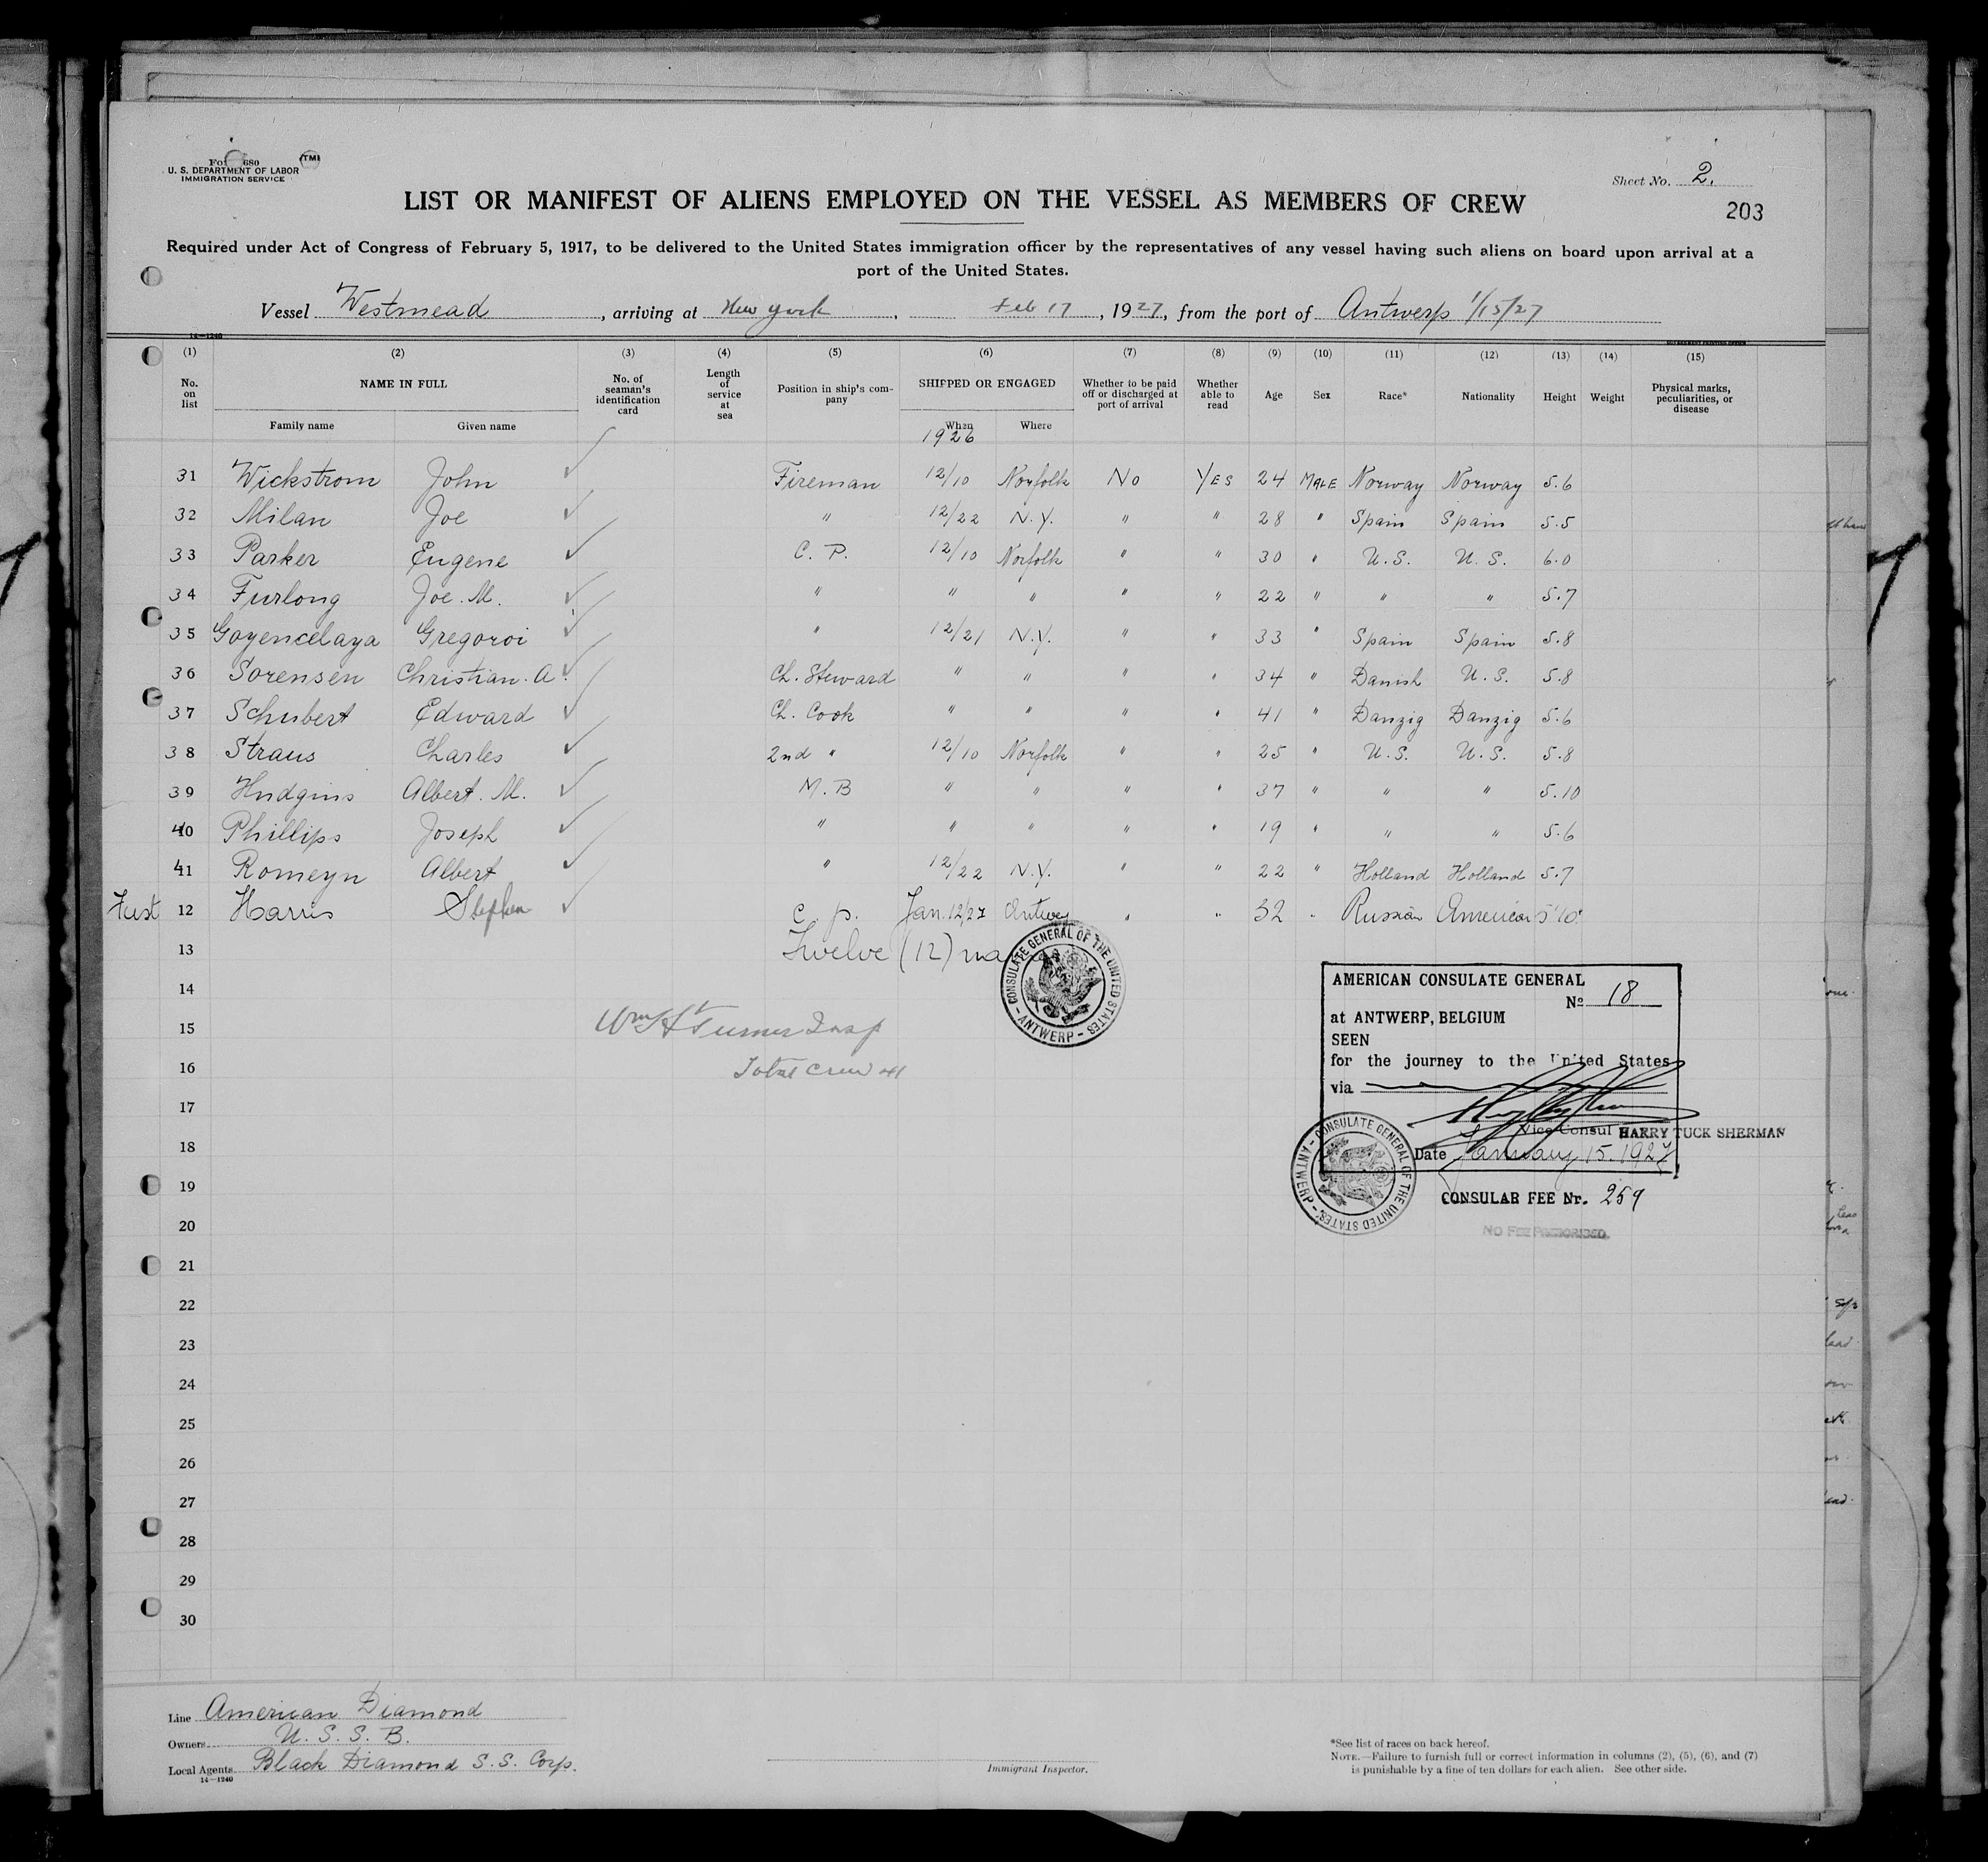 Form 680
U. S. DEPARTMENT OF LABOR
IMMIGRATION SERVICE
Sheet No. 2.
LIST OR MANIFEST OF ALIENS EMPLOYED ON THE VESSEL AS MEMBERS OF CREW
203
Required under Act of Congress of February 5, 1917, to be delivered to the United States immigration officer by the representatives of any vessel having such aliens on board upon arrival at a
port of the United States.
Vessel Westmead, arriving at New York, Feb 17, 1927, from the port of Antwerp 1/15/27
14-1240
(1) (2) (3) (4) (5) (6) (7) (8) (9) (10) (11) (12) (13) (14) (15)
No. on list NAME IN FULL No. of seaman's identification card Length of service at sea Position in ship's company SHIPPED OR ENGAGED Whether to be paid off or discharged at port of arrival Whether able to read Age Sex Race* Nationality Height Weight Physical marks, peculiarities, or disease
Family name Given name When Where
1926
31 Wickstrom John ✓ Fireman 12/10 Norfolk No YES 24 MALE Norway Norway 5.6
32 Milan Joe ✓ " 12/22 N.Y. " " 28 " Spain Spain 5.5
33 Parker Eugene ✓ C. P. 12/10 Norfolk " " 30 " U.S. U.S. 6.0
34 Furlong Joe. M. ✓ " " " " " 22 " " " 5.7
35 Goyencelaya Gregoroi ✓ " 12/21 N.Y. " " 33 " Spain Spain 5.8
36 Sorensen Christian. A. ✓ Ch. Steward " " " " 34 " Danish U.S. 5.8
37 Schubert Edward ✓ Ch. Cook " " " " 41 " Danzig Danzig 5.6
38 Straus Charles ✓ 2nd " 12/10 Norfolk " " 25 " U.S. U.S. 5.8
39 Hudgins Albert. M. ✓ M. B " " " " 37 " " " 5.10
40 Phillips Joseph ✓ " " " " " 19 " " " 5.6
41 Romeyn Albert ✓ " 12/22 N.Y. " " 22 " Holland Holland 5.7
First 12 Harris Stephen ✓ C. p. Jan. 12/27 Antwerp " " 32 " Russian American 5'10"
13 Twelve (12) names
14
15 Wm H Turner Insp
16 Total Crew 41
17
18
19
20
21
22
23
24
25
26
27
28
29
30
CONSULATE GENERAL OF THE UNITED STATES - ANTWERP -
AMERICAN CONSULATE GENERAL
No 18
at ANTWERP, BELGIUM
SEEN
for the journey to the United States
via
Vice Consul HARRY TUCK SHERMAN
Date January 15. 1927
CONSULATE GENERAL OF THE UNITED STATES - ANTWERP -
CONSULAR FEE Nr. 259
NO FEE PRESCRIBED.
Line American Diamond
Owners U. S. S. B.
Local Agents Black Diamond S.S. Corp.
14-1240
Immigrant Inspector.
*See list of races on back hereof.
NOTE.—Failure to furnish full or correct information in columns (2), (5), (6), and (7)
is punishable by a fine of ten dollars for each alien. See other side.